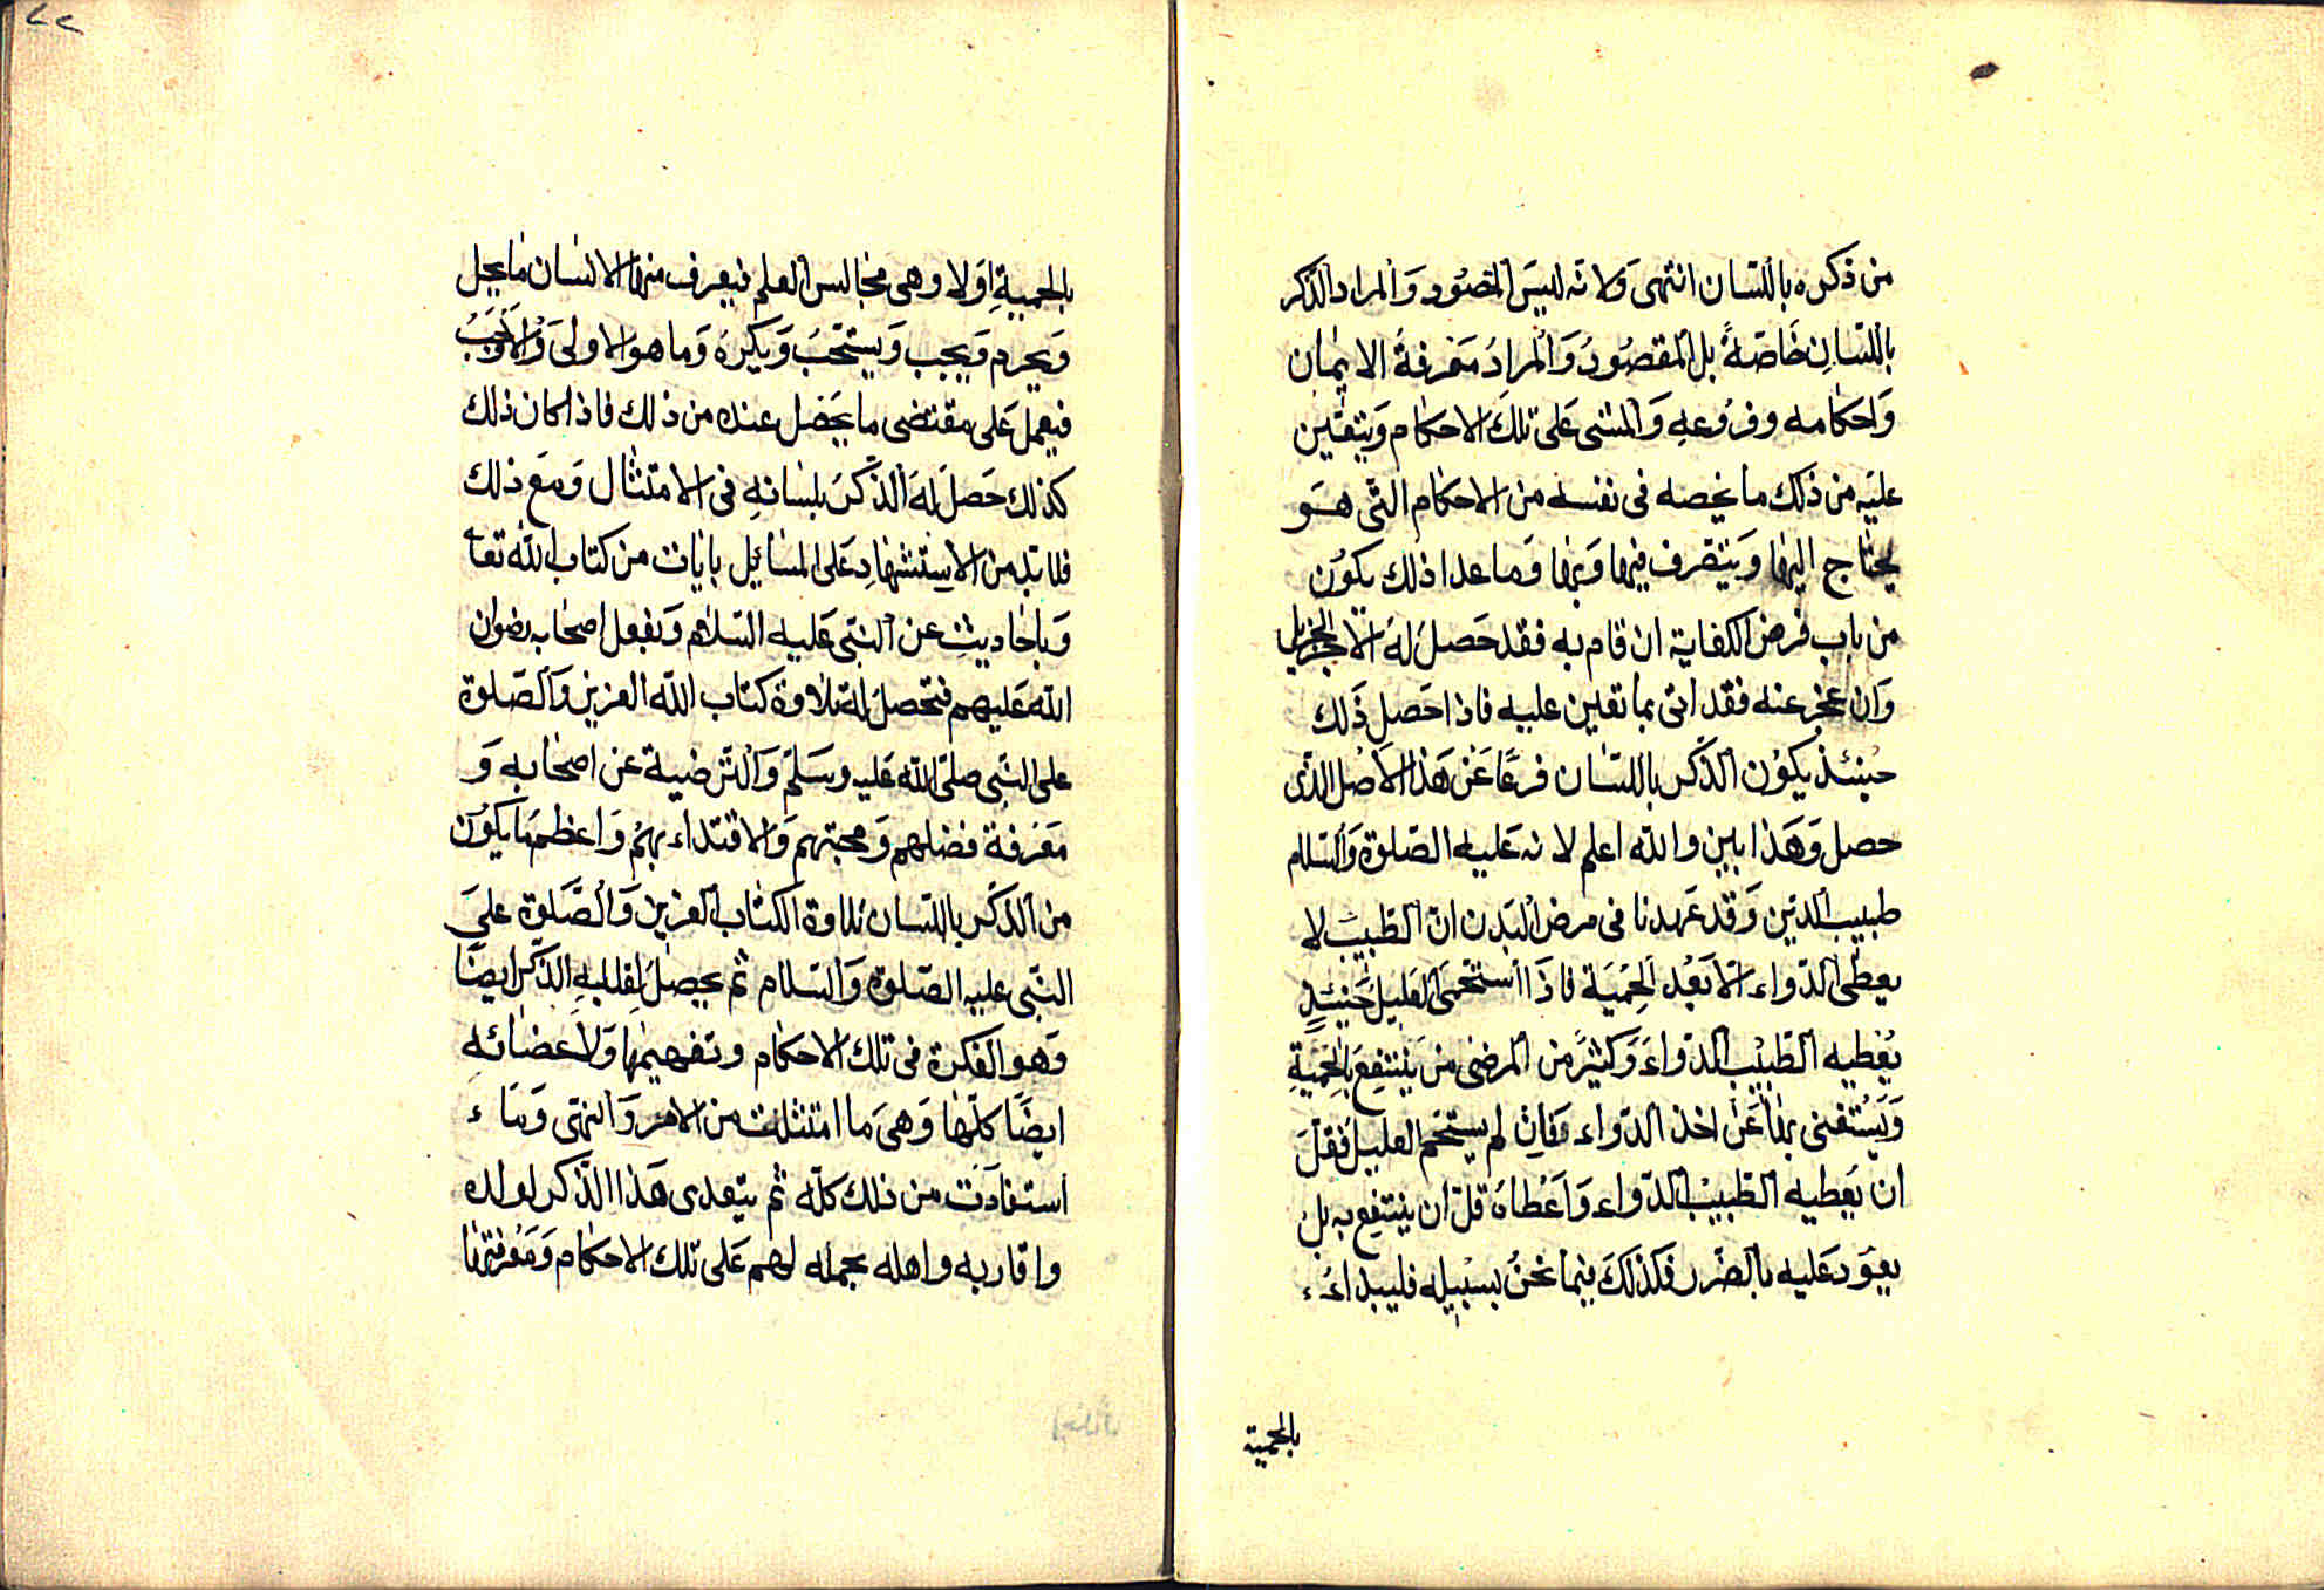 من ذكره باللسان انتهى ولانه ليس المقصود والمراد الذكر
باللسان خاصة بل المقصود والمراد معرفة الايمان
واحكامه وفروعه والمشى على تلك الاحكام ويتعين
عليه من ذلك ما يخصه فى نفسه من الاحكام التى هو
يحتاج اليها ويتصرف فيها وبها وما عدا ذلك يكون
من باب فرض الكفاية ان قام به فقد حصل له الاجر الجزيل
وان عجز عنه فقد اتى بما تعين عليه فاذا حصل ذلك
حينئذ يكون الذكر باللسان فرعا عن هذا الاصل الذى
حصل وهذا بين والله اعلم لانه عليه الصلوة والسلام
طبيب الدين وقد عهدنا فى مرض البدن ان الطبيب لا
يعطى الدواء الا بعد الحمية فاذا استحمى العليل حينئذ
يعطيه الطبيب الدواء وكثير من المرضى من ينتفع بالحمية
ويستغنى بها عن اخذ الدواء فان لم يستحم العليل فقل
ان يعطيه الطبيب الدواء واعطاه قل ان ينتفع به بل
يعود عليه بالضرر فكذلك فيما نحن بسبيله فليبداء
بالحمية
٢٢
بالحمية اولا وهى مجالس العلم فيعرف منها الانسان ما يحل
ويحرم ويجب ويستحب ويكره وما هو الاولى والاوجب
فيعمل على مقتضى ما يحصل عنده من ذلك فاذا كان ذلك
كذلك حصل له الذكر بلسانه فى الامتثال ومع ذلك
فلا بد من الاستشهاد على المسائل بايات من كتاب الله تعا
وباحاديث عن النبى عليه السلام وبفعل اصحابه رضوان
الله عليهم فتحصل له تلاوة كتاب الله العزيز والصلوة
على النبى صلى الله عليه وسلم والترضية عن اصحابه و
معرفة فضلهم ومحبتهم والاقتداء بهم واعظم ما يكون
من الذكر باللسان تلاوة الكتاب العزيز والصلوة على
النبى عليه الصلوة والسلام ثم يحصل لقلبه الذكر ايضا
وهو الفكرة فى تلك الاحكام وتفهيمها ولاعضائه
ايضا كلها وهى ما امتثلت من الامر والنهى وما
استفادت من ذلك كله ثم يتعدى هذا الذكر لولده
واقاربه واهله بحمله لهم على تلك الاحكام ومعرفتها